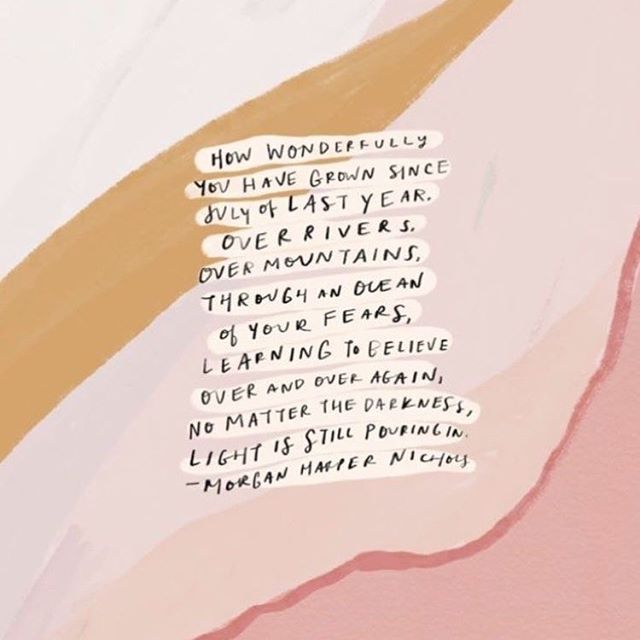 HOW WONDERFULLY
YOU HAVE GROWN SINCE
JULY of LAST YEAR.
OVER RIVERS.
OVER MOUNTAINS,
THROUGH AN OCEAN
of YOUR FEARS,
LEARNING To BELIEVE
OVER AND OVER AGAIN,
NO MATTER THE DARKNESS,
LIGHT IS STILL POURING IN.
-MORGAN HARPER NICHOLS